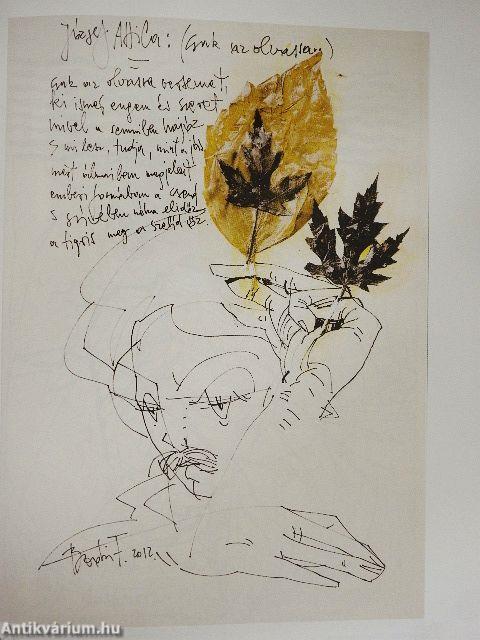 József Attila: (Csak az olvassa...)
II
Csak az olvassa versemet,
ki ismer engem és szeret,
mivel a semmiben hajóz
s mi lesz, tudja, mint a jós
mert álmaiban megjelent
emberi formában a csend
s szivében néha elidőz
a tigris meg a szelid őz.
F. 2012.
Antikvárium.hu